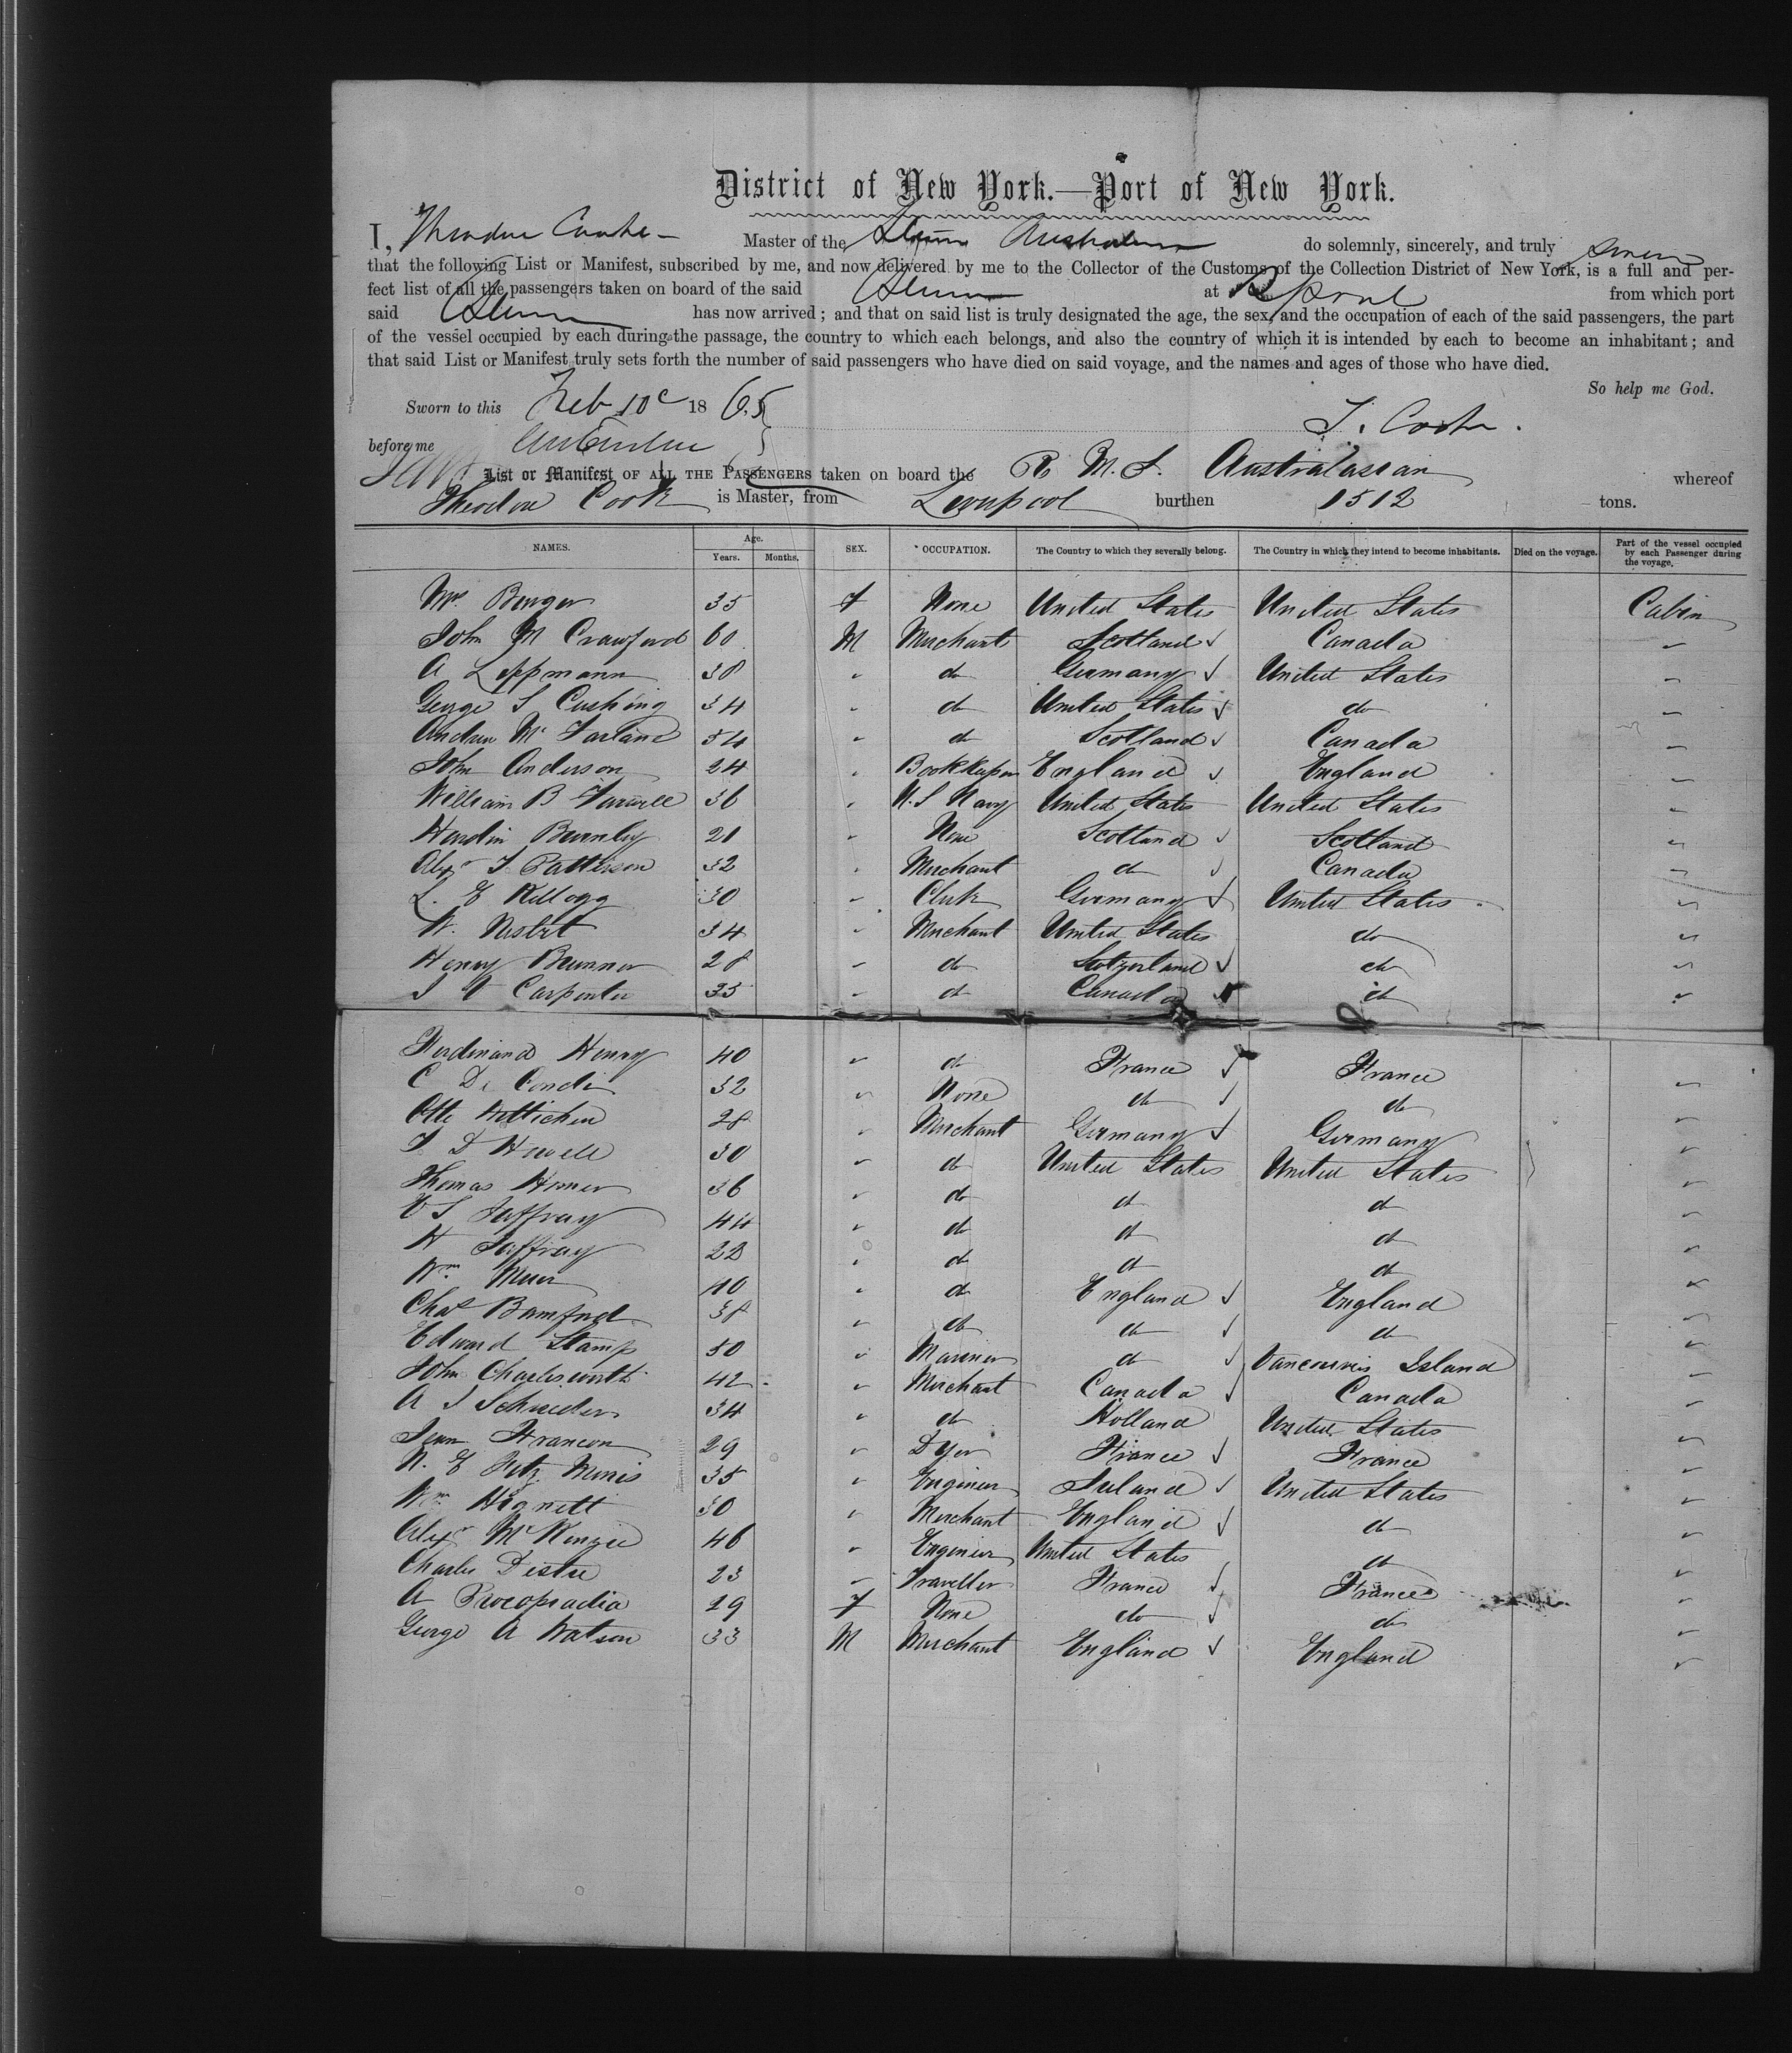 District of New York.—Port of New York.
I, Theodore Cooke Master of the Steam Australasian do solemnly, sincerely, and truly swear
that the following List or Manifest, subscribed by me, and now delivered by me to the Collector of the Customs of the Collection District of New York, is a full and per-
fect list of all the passengers taken on board of the said Steam at L'pool from which port
said Steam has now arrived; and that on said list is truly designated the age, the sex, and the occupation of each of the said passengers, the part
of the vessel occupied by each during the passage, the country to which each belongs, and also the country of which it is intended by each to become an inhabitant; and
that said List or Manifest truly sets forth the number of said passengers who have died on said voyage, and the names and ages of those who have died.
So help me God.
Sworn to this Feb 10 1865
T. Cooke.
before me
List or Manifest OF ALL THE PASSENGERS taken on board the R. M. S. Australasian whereof
Theodore Cook is Master, from Liverpool burthen 1512 tons.
NAMES. Age. Years. Months. SEX. OCCUPATION. The Country to which they severally belong. The Country in which they intend to become inhabitants. Died on the voyage. Part of the vessel occupied by each Passenger during the voyage.
Mrs Berger 35 F None United States United States Cabin
John M Crawford 60 M Merchant Scotland Canada
A Leppmann 38 " do Germany United States "
George S Cushing 34 " do United States do "
Andrew Mc Farlane 54 " do Scotland Canada "
John Anderson 24 " Bookkeeper England England "
William B Farwell 36 " U.S Navy United States United States "
Hardin Burnley 21 " None Scotland Scotland "
Alexr T Patterson 32 " Merchant do Canada "
L. E Kellogg 30 " Clerk Germany United States "
W. Nesbit 34 " Merchant United States do "
Henry Brunner 28 " do Switzerland do "
J A Carpenter 35 " do Canada do "
Ferdinand Henry 40 " do France France "
C De Conde 32 " None do do "
Otto Wittichen 28 " Merchant Germany Germany "
T D Howell 30 " do United States United States "
Thomas Homer 36 " do do do "
E S Jaffray 44 " do do do "
H Jaffray 22 " do do do "
Wm Muir 40 " do England England "
Chas Bamford 38 " do do do "
Edward Stamp 50 " Mariner do Vancouvers Island "
John Charlesworth 42 " Merchant Canada Canada "
A J Schneider 34 " do Holland United States "
Jean Francon 29 " Dyer France France "
N. E Fitz Morris 35 " Engineer Ireland United States "
Wm Hignett 30 " Merchant England do "
Alexr McKenzie 46 " Engineer United States do "
Charles Distre 23 " Traveller France France "
A Procopiadia 29 F None do do "
George A Watson 33 M Merchant England England "